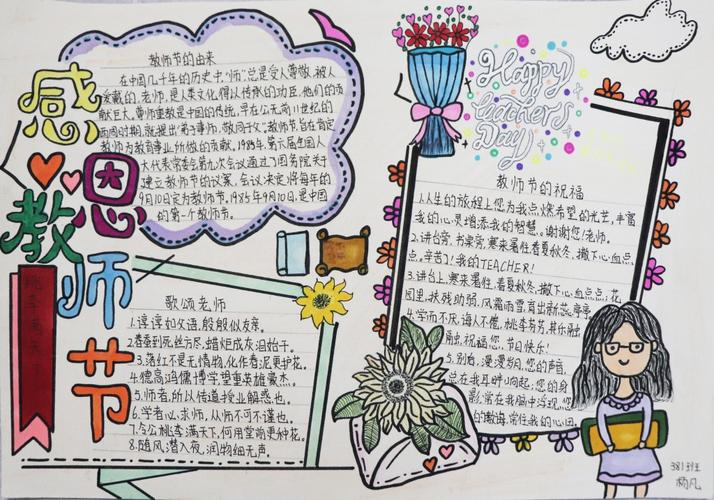 感恩教师节
桃李满天下
教师节的由来
在中国几千年的历史中,"师"总是受人尊敬,被人
爱戴的,老师,是人类文化得以传承的功臣,他们的贡
献巨大,尊师重教是中国的传统,早在公元前11世纪的
西周时期,就提出"弟子事师,敬同于父"教师节旨在肯定
教师为教育事业所做的贡献,1985年,第六届全国人
大代表常委会第九次会议通过了国务院关于
建立教师节的议案,会议决定将每年的
9月10日定为教师节,1985年9月10日,是中国
的第一个教师节。
歌颂老师
1.谆谆如父语,殷殷似友亲。
2.春蚕到死丝方尽,蜡炬成灰泪始干。
3.落红不是无情物,化作春泥更护花。
4.德高鸿儒博学,望重英雄豪杰。
5.师者,所以传道授业解惑也。
6.学者必求师,从师不可不谨也。
7.令公桃李满天下,何用堂前更种花。
8.随风潜入夜,润物细无声。
Happy
teachers
Day
教师节的祝福
1.人生的旅程上您为我点燃希望的光芒,丰富
我的心灵增添我的智慧。谢谢您!老师。
2.讲台旁,书桌旁,寒来暑往,春夏秋冬,撒下心血点
点,辛苦了!我的TEACHER!
3.讲台上,寒来暑往,春夏秋冬,撒下心血点点;花
园里,扶残助弱,风霜雨雪,育出新蕊亭亭
4.学而不厌,诲人不倦,桃李芬芳,其乐融
融,祝福您,节日快乐!
5.别后,漫漫岁月,您的声音,
总在我耳畔响起;您的身
影,常在我脑中浮现,您
的教诲,常在我的心田。
381班
杨凡